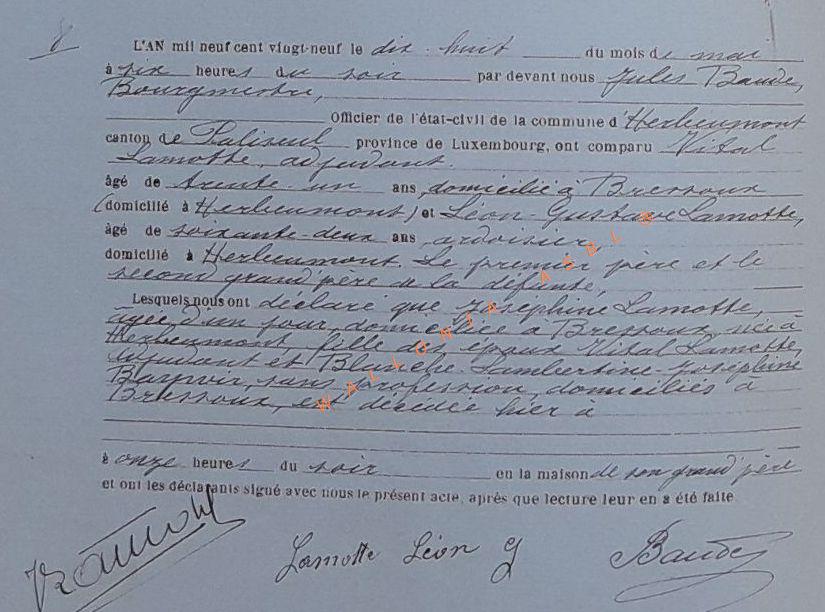 8
L'AN mil neuf cent vingt-neuf le dix-huit du mois de mai
à six heures du soir par devant nous Jules Baude,
Bourgmestre,
Officier de l'état-civil de la commune d'Herbeumont
canton de Paliseul province de Luxembourg, ont comparu Vital
Lamotte, adjudant.
âgé de trente-un ans, domicilié à Bressoux
(domicilié à Herbeumont) et Léon Gustave Lamotte,
âgé de soixante-deux ans, ardoisier,
domicilié à Herbeumont. Le premier père et le
second grand'père de la défunte,
Lesquels nous ont déclaré que Joséphine Lamotte,
âgée d'un jour, domiciliée à Bressoux, née à
Herbeumont, fille des époux Vital Lamotte,
adjudant et Blanche Lambertine Joséphine
sans profession, domiciliés à
Bressoux, est décédée hier à
à onze heures du soir en la maison de son grand'père
et ont les déclarants signé avec nous le présent acte, après que lecture leur en a été faite.
Lamotte Léon G Baude
WALLONIA ASBL ©